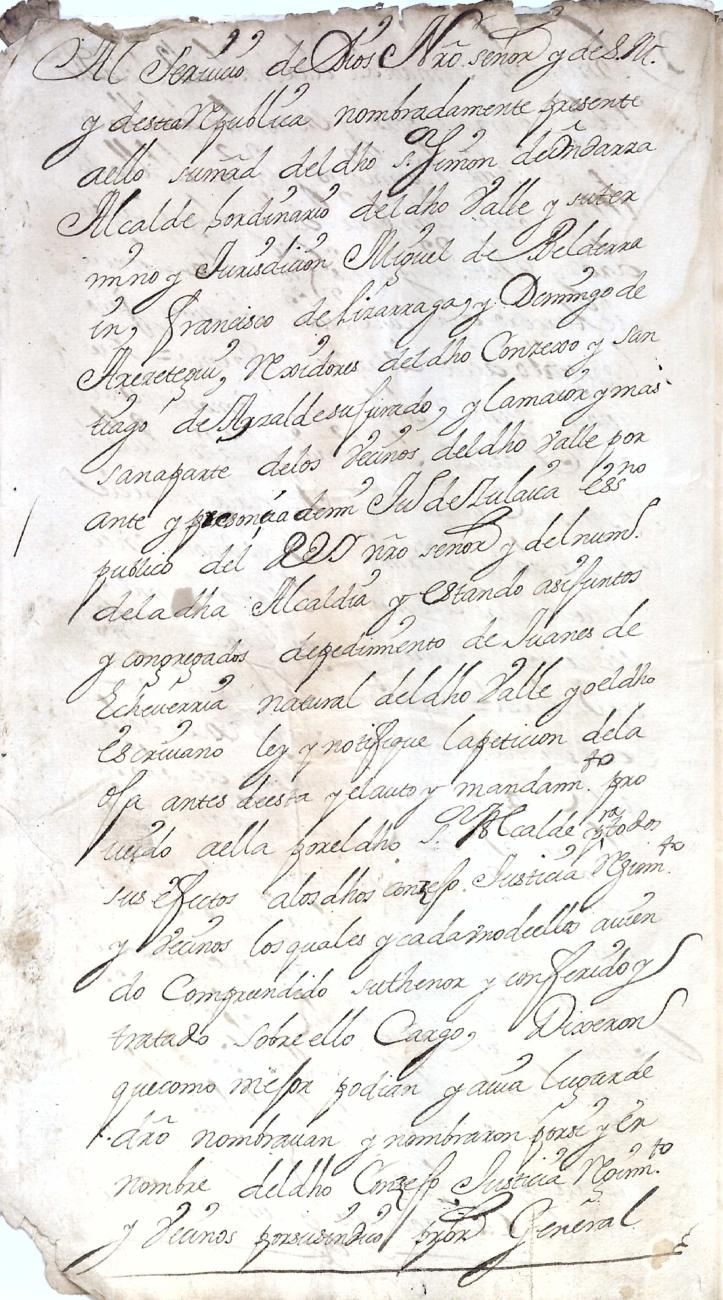 Al Seruicio de Dios Nrõ señor y de S. M.
y desta Republica nombradamente presente
aello sumrd del dho s.r Simon de Vndarra
Alcalde hordinario del dho Valle y suter
mino y Jurisdicion Miguel de Belderra
in, Francisco de Lizarraga, y Domingo de
Arezetegui, Rexidores del dho Conzexo y san
tiago de Arzalde su Jurado, y lamaior y mas
sanaparte delos Vecinos del dho Valle por
ante y presencia de mi Ju.s de Zulaica Ess.no
publico del REY nrõ señor y del num.o
dela dha Alcaldia y estando asi Juntos
y congregados depedimento de Juanes de
Echeverria natural del dho Valle yo el dho
escriuano ley y notifique lapeticion dela
oJa antes desta y elauto y mandam.to pro
ueido aella por el dho s.r Alcalde p.ra todos
sus efectos alos dhos conzejo Justicia Rejim.to
y Vecinos los quales y cada vno dellos auien
do Comprendido suthenor y conferido y
tratado sobre ello Cargo, Dixeron
que como mejor podian y auia lugar de
drõ nombrauan y nombraron por si y en
nombre del dho Conzejo Justicia Rejim.to
y Vecinos por su sindico pror General